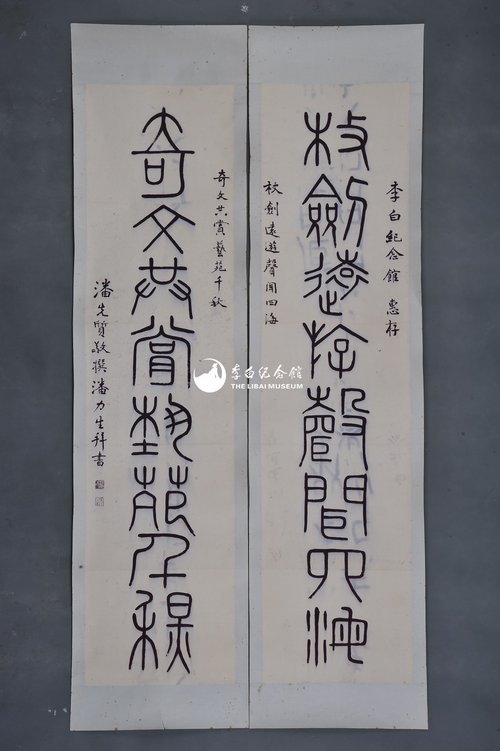 李白紀念館 惠存
杖劍遠游聲聞四海
杖劍遠遊聲聞四海
奇文共賞藝苑千秋
奇文共賞藝苑千秋
潘先質敬撰潘力生拜書
李白紀念館
THE LIBAI MUSEUM